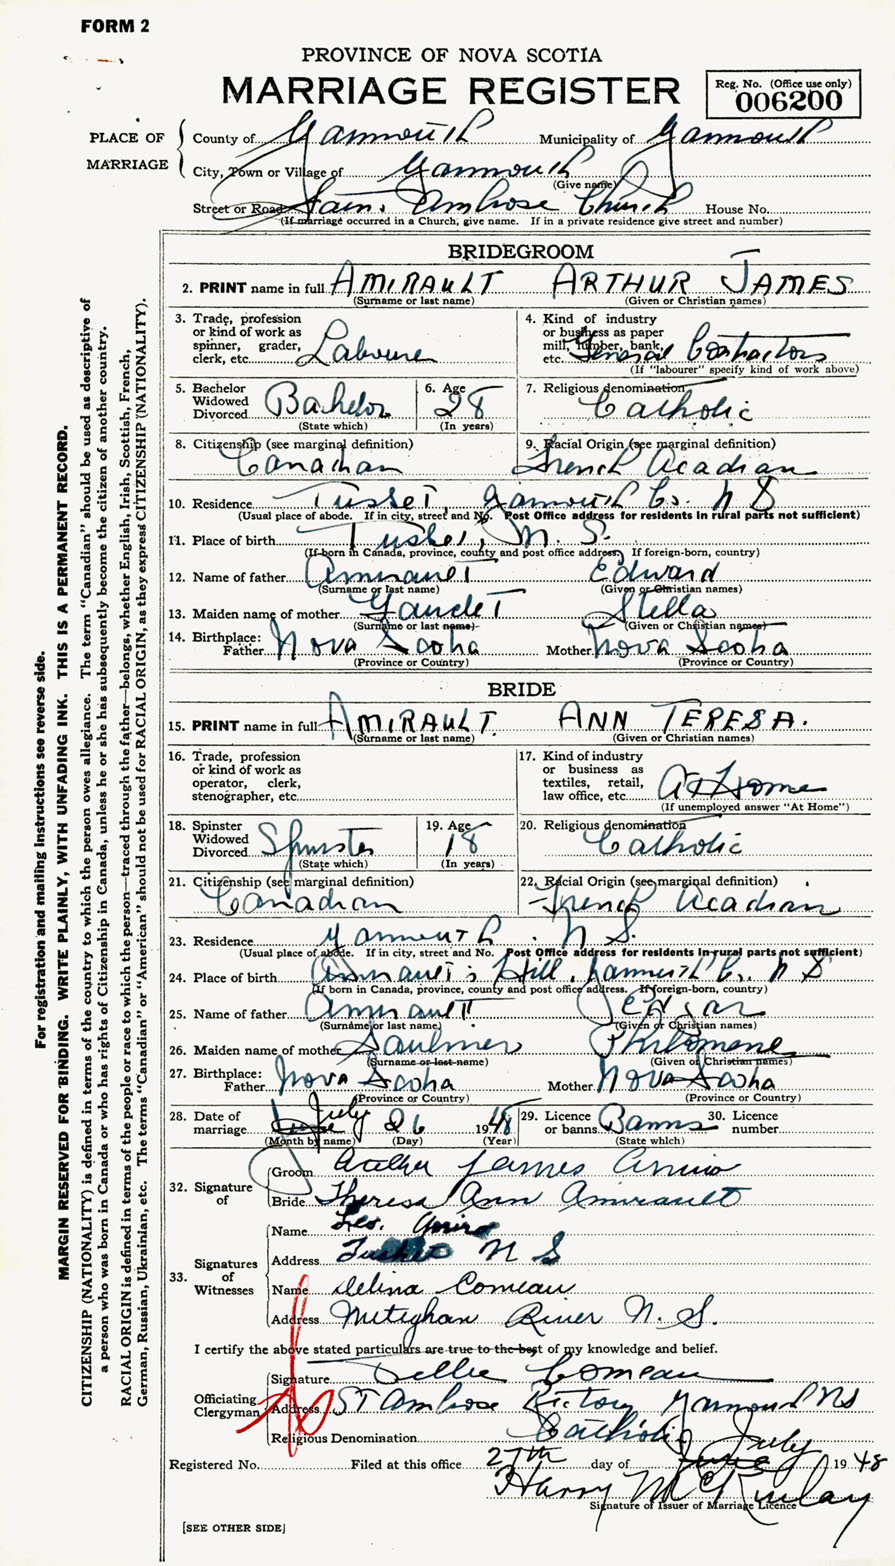 FORM 2
PROVINCE OF NOVA SCOTIA
MARRIAGE REGISTER
Reg. No. (Office use only)
006200
PLACE OF MARRIAGE
County of Yarmouth Municipality of Yarmouth
City, Town or Village of Yarmouth
(Give name)
Street or Road Saint Ambrose Church House No.
(If marriage occurred in a Church, give name. If in a private residence give street and number)
BRIDEGROOM
2. PRINT name in full AMIRAULT ARTHUR JAMES
(Surname or last name) (Given or Christian names)
3. Trade, profession or kind of work as spinner, grader, clerk, etc. Laborer
4. Kind of industry or business as paper mill, lumber, bank, etc. General Contractors
(If "labourer" specify kind of work above)
5. Bachelor Widowed Divorced Bachelor
(State which)
6. Age 28
(In years)
7. Religious denomination Catholic
8. Citizenship (see marginal definition) Canadian
9. Racial Origin (see marginal definition) French Acadian
10. Residence Tusket Yarmouth Co. N S
(Usual place of abode. If in city, street and No. Post Office address for residents in rural parts not sufficient)
11. Place of birth Tusket, N. S.
(If born in Canada, province, county and post office address. If foreign-born, country)
12. Name of father Amirault Edward
(Surname or last name) (Given or Christian names)
13. Maiden name of mother Gaudet Stella
(Surname or last name) (Given or Christian names)
14. Birthplace: Father Nova Scotia Mother Nova Scotia
(Province or Country) (Province or Country)
BRIDE
15. PRINT name in full AMIRAULT ANN TERESA.
(Surname or last name) (Given or Christian names)
16. Trade, profession or kind of work as operator, clerk, stenographer, etc.
17. Kind of industry or business as textiles, retail, law office, etc. At Home
(If unemployed answer "At Home")
18. Spinster Widowed Divorced Spinster
(State which)
19. Age 18
(In years)
20. Religious denomination Catholic
21. Citizenship (see marginal definition) Canadian
22. Racial Origin (see marginal definition) French Acadian
23. Residence Yarmouth N. S.
(Usual place of abode. If in city, street and No. Post Office address for residents in rural parts not sufficient)
24. Place of birth Amirault's Hill, Yarmouth Co. N S
(If born in Canada, province, county and post office address. If foreign-born, country)
25. Name of father Amirault Edgar
(Surname or last name) (Given or Christian names)
26. Maiden name of mother Saulnier Philomene
(Surname or last name) (Given or Christian names)
27. Birthplace: Father Nova Scotia Mother Nova Scotia
(Province or Country) (Province or Country)
28. Date of marriage June July 26 1948
(Month by name) (Day) (Year)
29. Licence or banns Banns
(State which)
30. Licence number
32. Signature of
Groom Arthur James Amiro
Bride Theresa Ann Amirault
33. Signatures of Witnesses
Name Leo. Amiro
Address Tusket N S
Name Delina Comeau
Address Meteghan River N. S.
I certify the above stated particulars are true to the best of my knowledge and belief.
Officiating Clergyman
Signature Nellie Comeau
Address St Ambrose Rectory Yarmouth NS
Religious Denomination Catholic
Registered No. Filed at this office 27th day of June July 1948
Harry McKinlay
Signature of Issuer of Marriage Licence
[SEE OTHER SIDE]
For registration and mailing instructions see reverse side.
MARGIN RESERVED FOR BINDING. WRITE PLAINLY, WITH UNFADING INK. THIS IS A PERMANENT RECORD.
CITIZENSHIP (NATIONALITY) is defined in terms of the country to which the person owes allegiance. The term "Canadian" should be used as descriptive of
a person who was born in Canada or who has rights of Citizenship in Canada, unless he or she has subsequently become the citizen of another country.
RACIAL ORIGIN is defined in terms of the people or race to which the person—traced through the father—belongs, whether English, Irish, Scottish, French,
German, Russian, Ukrainian, etc. The terms "Canadian" or "American" should not be used for RACIAL ORIGIN, as they express CITIZENSHIP (NATIONALITY).